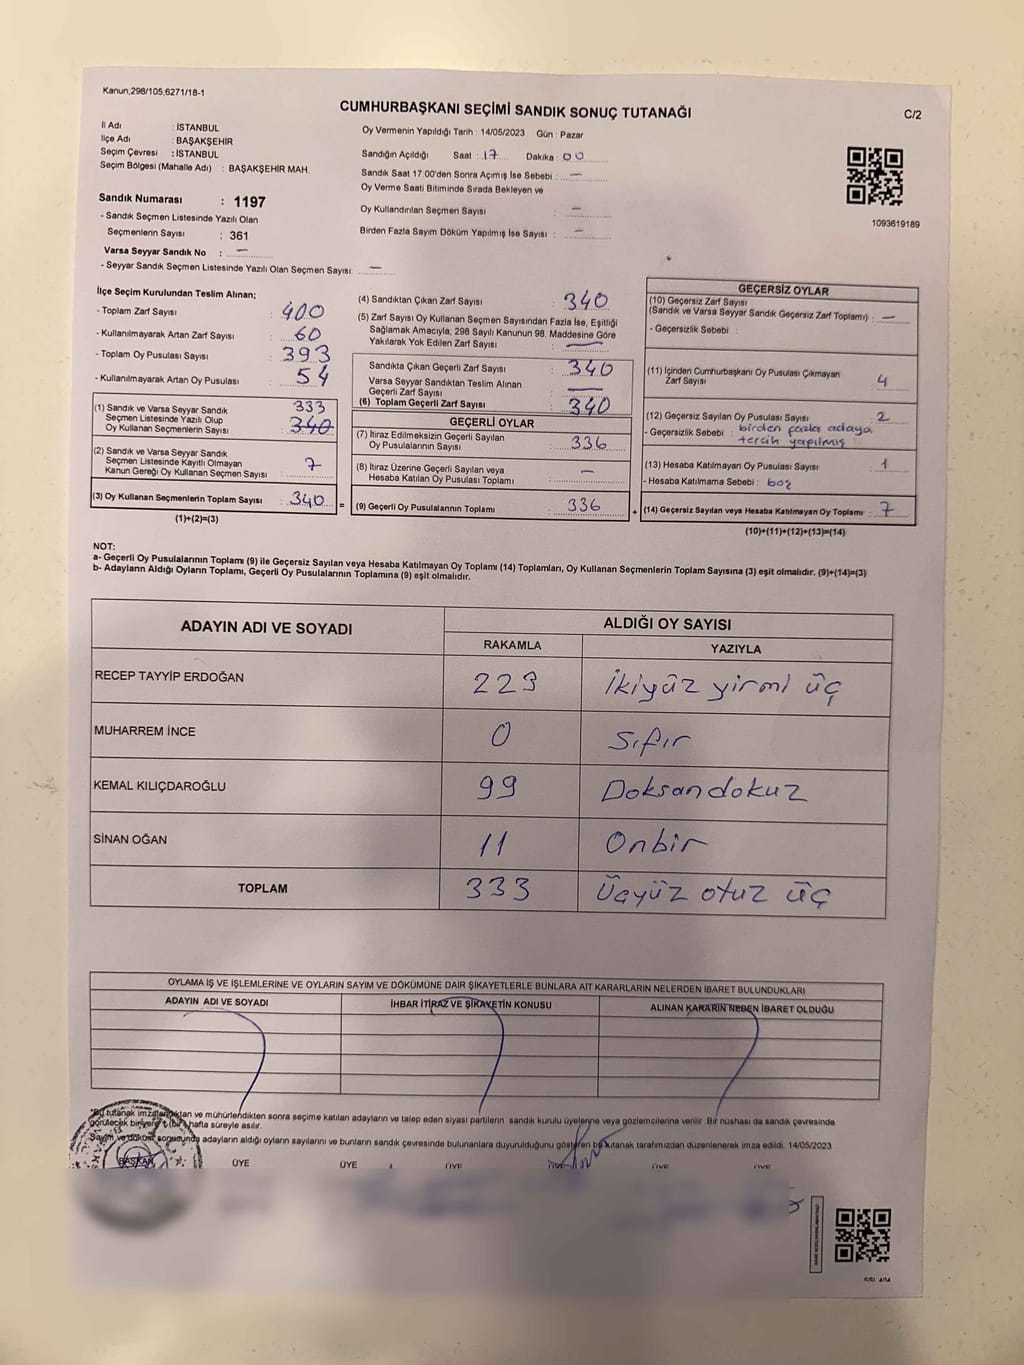 Kanun,298/105,6271/18-1
CUMHURBAŞKANI SEÇİMİ SANDIK SONUÇ TUTANAĞI
C/2
İl Adı : İSTANBUL
İlçe Adı : BAŞAKŞEHİR
Seçim Çevresi : İSTANBUL
Seçim Bölgesi (Mahalle Adı) : BAŞAKŞEHİR MAH.
Oy Vermenin Yapıldığı Tarih : 14/05/2023 Gün : Pazar
Sandığın Açıldığı Saat : 17 Dakika : 00
Sandık Saat 17.00'den Sonra Açımış İse Sebebi : —
Oy Verme Saati Bitiminde Sırada Bekleyen ve
Oy Kullandırılan Seçmen Sayısı : —
Birden Fazla Sayım Döküm Yapılmış İse Sayısı : —
1093619189
Sandık Numarası : 1197
- Sandık Seçmen Listesinde Yazılı Olan
Seçmenlerin Sayısı : 361
Varsa Seyyar Sandık No : —
- Seyyar Sandık Seçmen Listesinde Yazılı Olan Seçmen Sayısı: —
İlçe Seçim Kurulundan Teslim Alınan;
- Toplam Zarf Sayısı : 400
- Kullanılmayarak Artan Zarf Sayısı : 60
- Toplam Oy Pusulası Sayısı : 393
- Kullanılmayarak Artan Oy Pusulası : 54
(1) Sandık ve Varsa Seyyar Sandık
Seçmen Listesinde Yazılı Olup
Oy Kullanan Seçmenlerin Sayısı : 333 340
(2) Sandık ve Varsa Seyyar Sandık
Seçmen Listesinde Kayıtlı Olmayan
Kanun Gereği Oy Kullanan Seçmen Sayısı : 7
(3) Oy Kullanan Seçmenlerin Toplam Sayısı : 340
(1)+(2)=(3)
(4) Sandıktan Çıkan Zarf Sayısı : 340
(5) Zarf Sayısı Oy Kullanan Seçmen Sayısından Fazla İse, Eşitliği
Sağlamak Amacıyla, 298 Sayılı Kanunun 98. Maddesine Göre
Yakılarak Yok Edilen Zarf Sayısı : —
Sandıkta Çıkan Geçerli Zarf Sayısı : 340
Varsa Seyyar Sandıktan Teslim Alınan
Geçerli Zarf Sayısı : —
(6) Toplam Geçerli Zarf Sayısı : 340
GEÇERLİ OYLAR
(7) İtiraz Edilmeksizin Geçerli Sayılan
Oy Pusulalarının Sayısı : 336
(8) İtiraz Üzerine Geçerli Sayılan veya
Hesaba Katılan Oy Pusulası Toplamı : —
= (9) Geçerli Oy Pusulalarının Toplamı : 336
GEÇERSİZ OYLAR
(10) Geçersiz Zarf Sayısı
(Sandık ve Varsa Seyyar Sandık Geçersiz Zarf Toplamı) : —
- Geçersizlik Sebebi :
(11) İçinden Cumhurbaşkanı Oy Pusulası Çıkmayan
Zarf Sayısı : 4
(12) Geçersiz Sayılan Oy Pusulası Sayısı : 2
- Geçersizlik Sebebi : birden fazla adaya
tercih yapılmış
(13) Hesaba Katılmayan Oy Pusulası Sayısı : 1
- Hesaba Katılmama Sebebi : boş
+ (14) Geçersiz Sayılan veya Hesaba Katılmayan Oy Toplamı : 7
(10)+(11)+(12)+(13)=(14)
NOT:
a- Geçerli Oy Pusulalarının Toplamı (9) ile Geçersiz Sayılan veya Hesaba Katılmayan Oy Toplamı (14) Toplamları, Oy Kullanan Seçmenlerin Toplam Sayısına (3) eşit olmalıdır. (9)+(14)=(3)
b- Adayların Aldığı Oyların Toplamı, Geçerli Oy Pusulalarının Toplamına (9) eşit olmalıdır.
ADAYIN ADI VE SOYADI
ALDIĞI OY SAYISI
RAKAMLA YAZIYLA
RECEP TAYYİP ERDOĞAN 223 İkiyüz yirmi üç
MUHARREM İNCE 0 Sıfır
KEMAL KILIÇDAROĞLU 99 Doksandokuz
SİNAN OĞAN 11 Onbir
TOPLAM 333 Üçyüz otuz üç
OYLAMA İŞ VE İŞLEMLERİNE VE OYLARIN SAYIM VE DÖKÜMÜNE DAİR ŞİKAYETLERLE BUNLARA AİT KARARLARIN NELERDEN İBARET BULUNDUKLARI
ADAYIN ADI VE SOYADI İHBAR İTİRAZ VE ŞİKAYETİN KONUSU ALINAN KARARIN NEDEN İBARET OLDUĞU
"Bu tutanak imzalandıktan ve mühürlendikten sonra seçime katılan adayların ve talep eden siyasi partilerin sandık kurulu üyelerine veya gözlemcilerine verilir. Bir nüshası da sandık çevresinde
görülecek bir yere 1 (bir) hafta süreyle asılır.
Sayım ve döküm sonucunda adayların aldığı oyların sayılarını ve bunların sandık çevresinde bulunanlara duyurulduğunu gösteren bu tutanak tarafımızdan düzenlenerek imza edildi. 14/05/2023
BAŞKAN ÜYE ÜYE ÜYE ÜYE ÜYE ÜYE